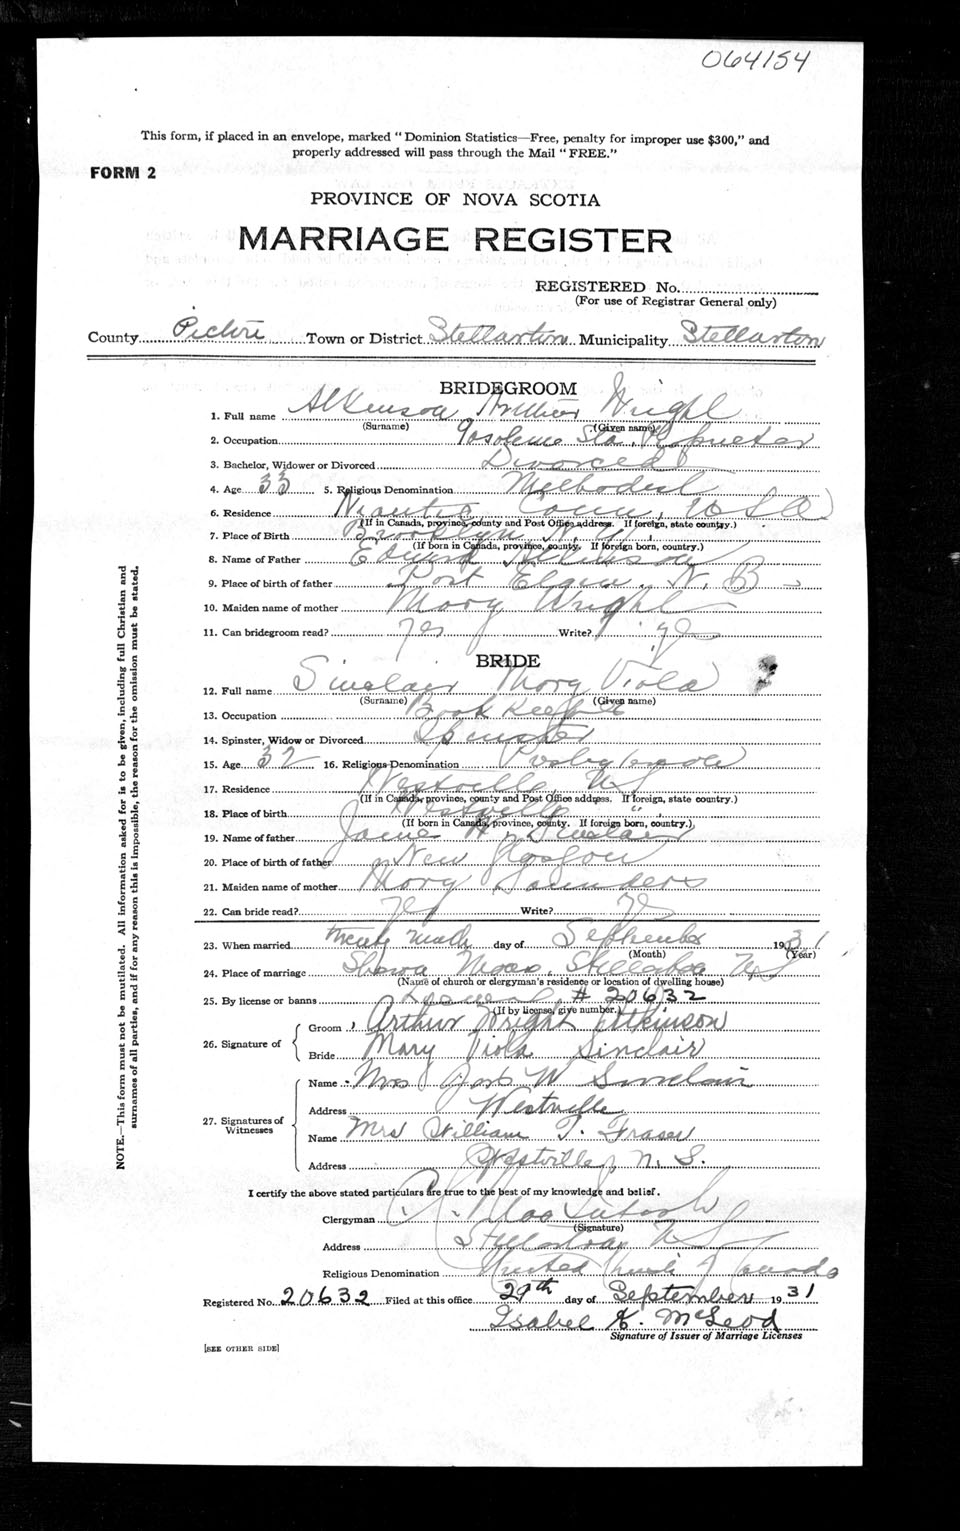 064154
This form, if placed in an envelope, marked "Dominion Statistics—Free, penalty for improper use $300," and
properly addressed will pass through the Mail "FREE."
FORM 2
PROVINCE OF NOVA SCOTIA
MARRIAGE REGISTER
REGISTERED No.
(For use of Registrar General only)
County Pictou Town or District Stellarton Municipality Stellarton
BRIDEGROOM
1. Full name Atkinson Arthur Wright
(Surname) (Given name)
2. Occupation Gasolene Sta. Proprietor
3. Bachelor, Widower or Divorced Divorced
4. Age 33 5. Religious Denomination Methodist
6. Residence Niantic Conn, U S A
(If in Canada, province, county and Post Office address. If foreign, state country.)
7. Place of Birth Brooklyn N. Y.
(If born in Canada, province, county. If foreign born, country.)
8. Name of Father Edward Atkinson
9. Place of birth of father Port Elgin, N. B
10. Maiden name of mother Mary Wright
11. Can bridegroom read? yes Write? yes
BRIDE
12. Full name Sinclair Mary Viola
(Surname) (Given name)
13. Occupation Book Keeper
14. Spinster, Widow or Divorced Spinster
15. Age 32 16. Religious Denomination Presbyterian
17. Residence Westville N S
(If in Canada, province, county and Post Office address. If foreign, state country.)
18. Place of birth Westville " "
(If born in Canada, province, county. If foreign born, country.)
19. Name of father James W. Sinclair
20. Place of birth of father New Glasgow
21. Maiden name of mother Mary Saunders
22. Can bride read? yes Write? yes
23. When married Twenty ninth day of September 1931
(Month) (Year)
24. Place of marriage Manse, Stellarton N S
(Name of church or clergyman's residence or location of dwelling house)
25. By license or banns License # 20632
(If by license, give number.)
26. Signature of
Groom Arthur Wright Atkinson
Bride Mary Viola Sinclair
27. Signatures of Witnesses
Name Mrs Jas W Sinclair
Address Westville
Name Mrs William T. Fraser
Address Westville, N. S.
I certify the above stated particulars are true to the best of my knowledge and belief.
Clergyman
(Signature)
Address Stellarton N S
Religious Denomination United Church of Canada
Registered No. 20632 Filed at this office 29th day of September 1931
Isabel K. McLeod
Signature of Issuer of Marriage Licenses
[SEE OTHER SIDE]
NOTE.—This form must not be mutilated. All information asked for is to be given, including full Christian and
surnames of all parties, and if for any reason this is impossible, the reason for the omission must be stated.